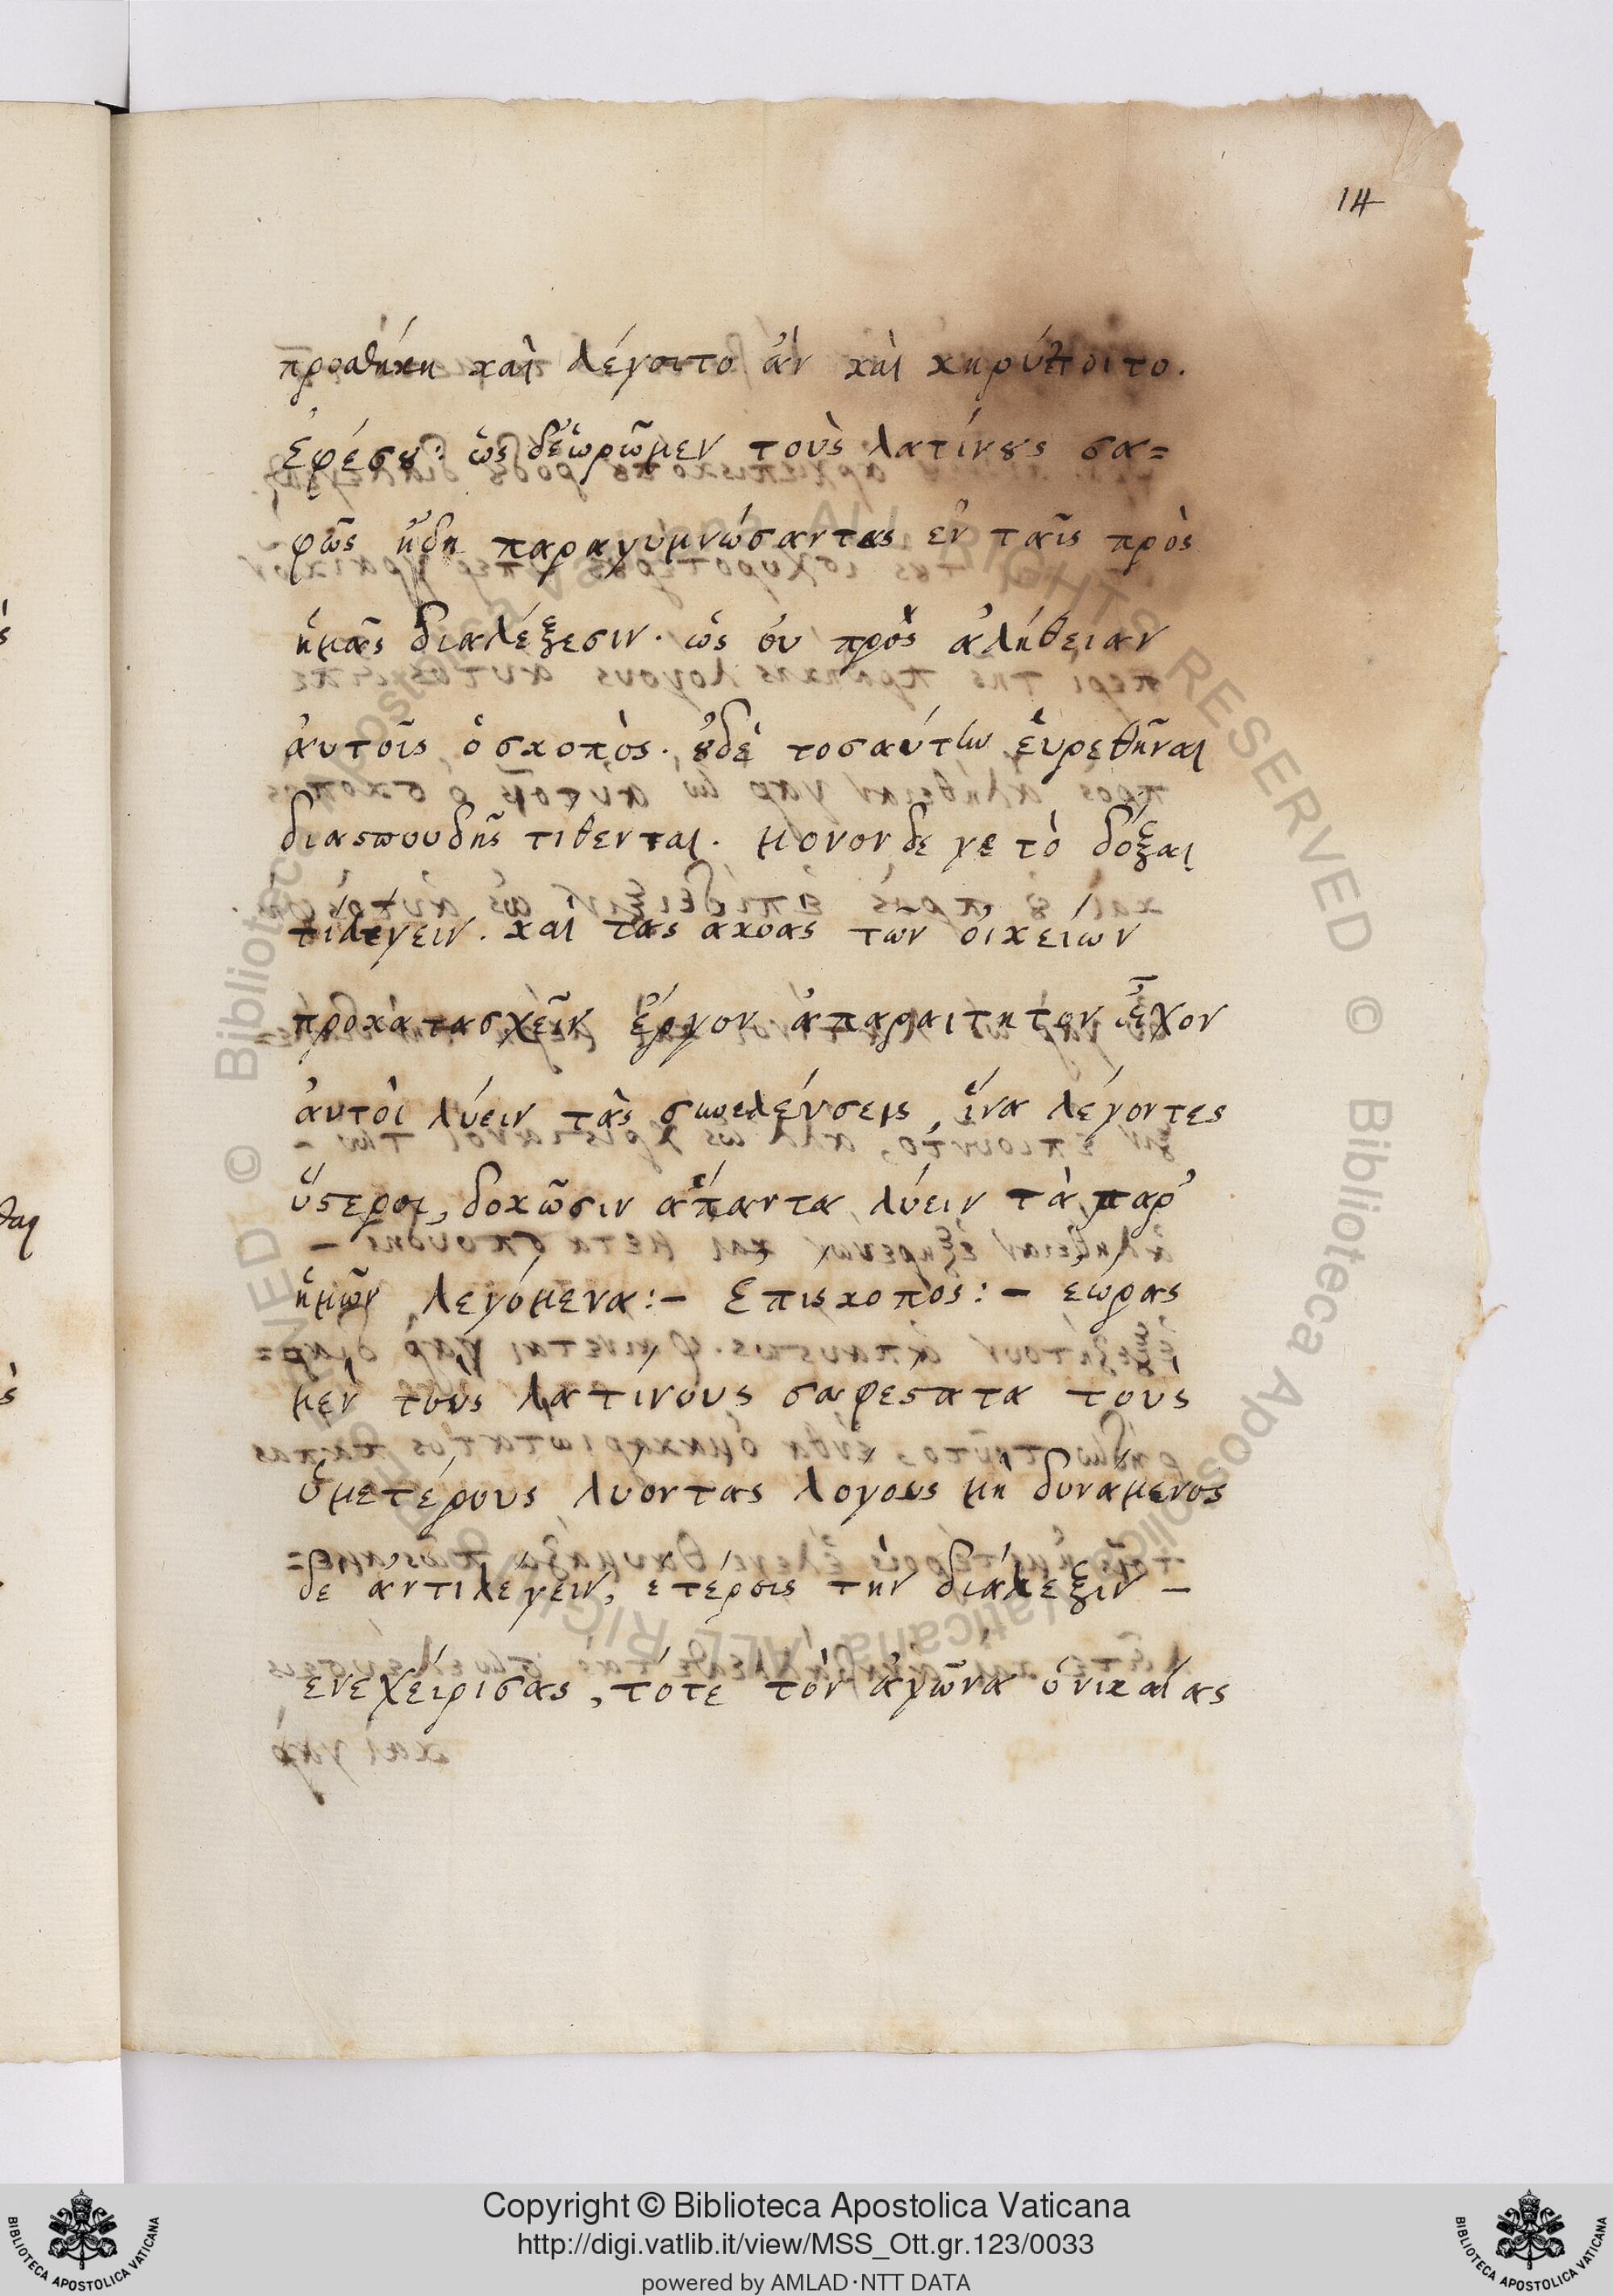 14
προσθήκη καὶ λέγοιτο ἀν καὶ κηρύττοιτο.
ἐφέσȣ: ὡς δὲ ὁρῶμεν τοὺς λατίνȣς σα=
φῶς ἤδη παραγυμνώσαντας ἐν ταῖς πρὸς
ἡμᾶς διαλέξεσιν. ὡς ὀυ πρὸς ἀλήθειαν
ἀυτοῖς ὁ σκοπὸς. ȣδὲ τοσαύτην ἑυρεθῆναι
διασπουδῆς τίθενται. μόνον δε γε τὸ δόξαι
τιλέγειν. καὶ τὰς ἀκοὰς τῶν ὀικείων
προκατασχεῖν ἔργον ἀπαραίτητον εἶχον
ἀυτοὶ λύειν τὰς συνελέυσεις, ἵνα λέγοντες
ὕστεροι, δοκῶσιν ἅπαντα λύειν τὰ παρ’
ἡμῶν λεγόμενα:- Επισκοπος:- εώρας
μὲν τοὺς λατίνους σαφέστατα τοὺς
ὑμετέρους λύοντας λόγους μὴ δυνάμενος
δε ἀντιλέγειν, ετέροις τὴν διάλεξιν –
ενεχείρισας, τότε τὸν ἀγῶνα ὁ νικαίας
Copyright © Biblioteca Apostolica Vaticana
http://digi.vatlib.it/view/MSS_Ott.gr.123/0033
powered by AMLAD·NTT DATA